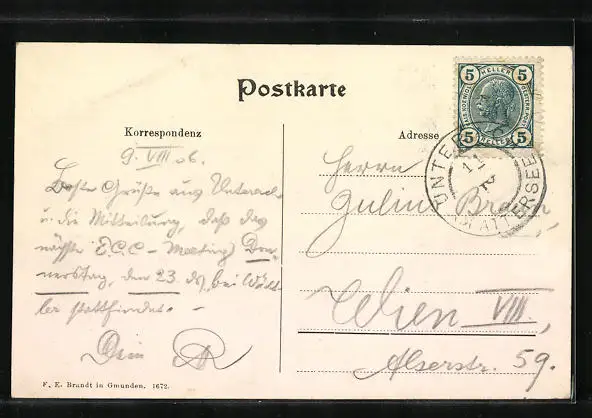 Postkarte
Korrespondenz
Adresse
9. VIII 06.
Beste Grüße aus Unterach
u. die Mitteilung, daß das
nächste E.C.C – Meeting Don-
nerstag, den 23. ds, bei
stattfindet. –
Dein
Herrn
Julius
Wien VIII,
Alserstr. 59.
5 HELLER 5
5 HELLER 5
UNTERACH
ATTERSEE
F. E. Brandt in Gmunden. 1672.